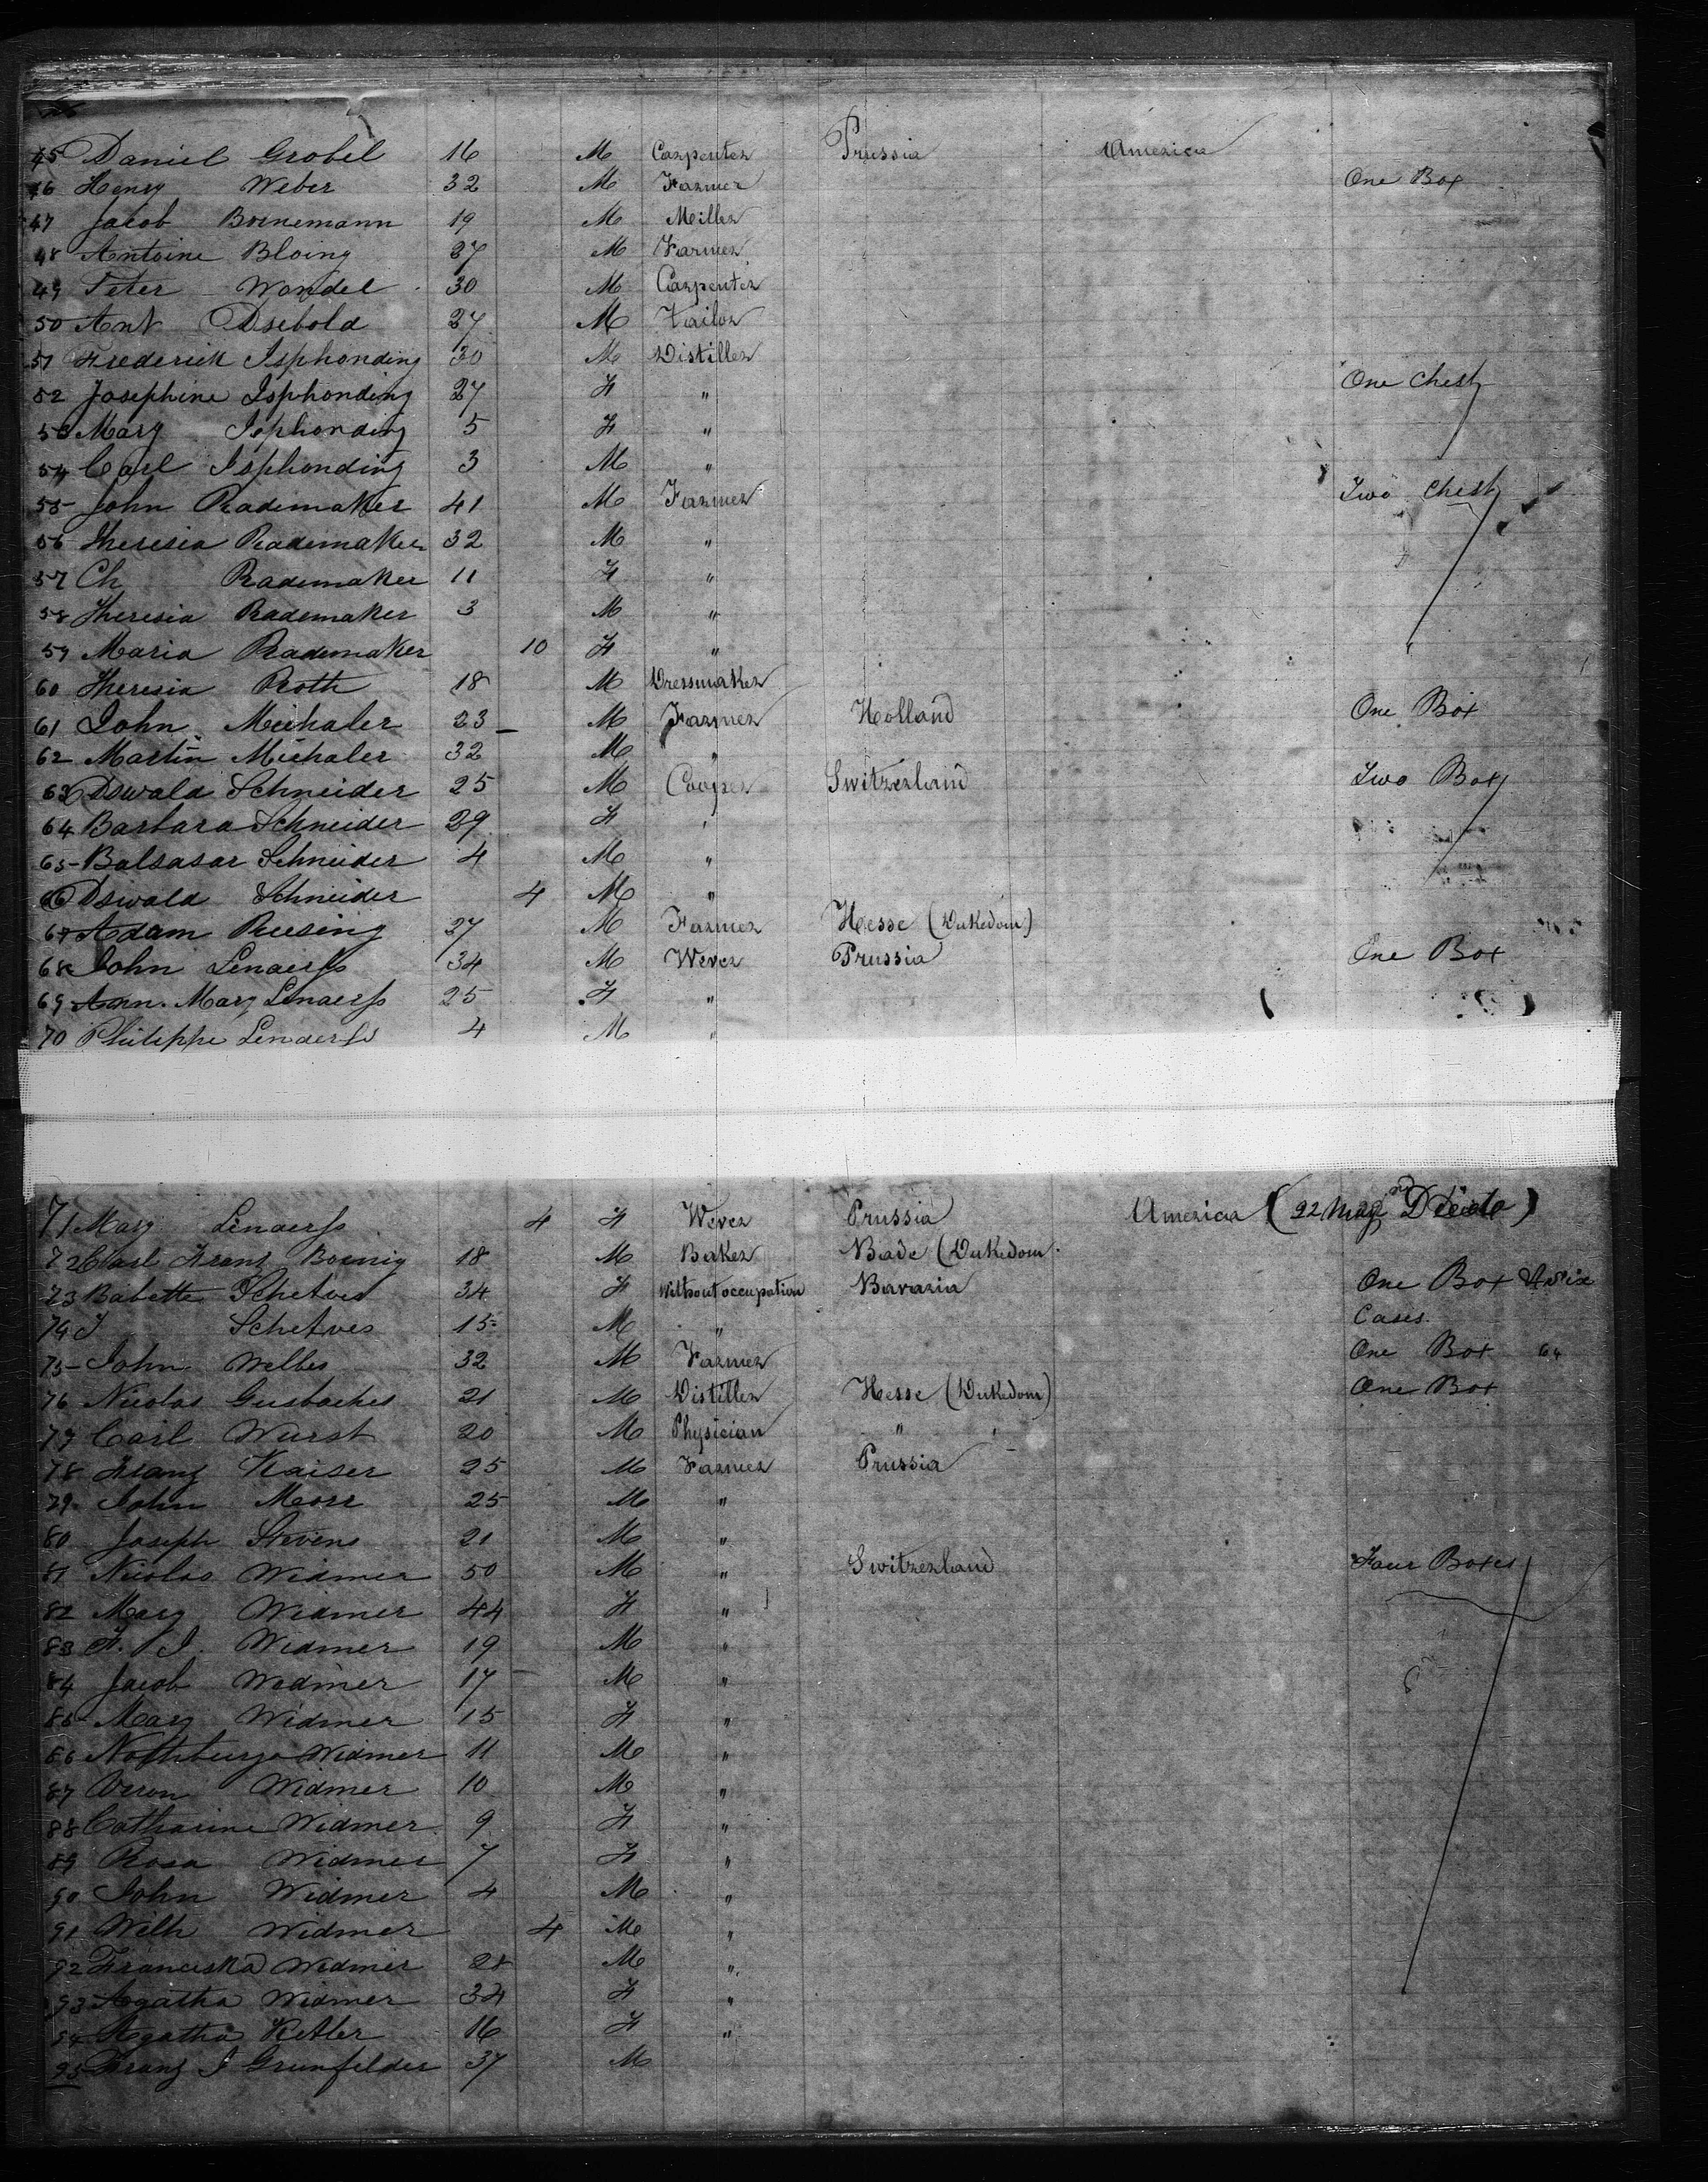 45 Daniel Grobel 16 M Carpenter Prussia America
46 Henry Weber 32 M Farmer One Box
47 Jacob Bornemann 19 M Miller
48 Antoine Bloing 27 M Farmer
49 Peter Wondel 30 M Carpenter
50 Ant Osebold 27 M Tailor
51 Frederick Isphonding 30 M Distiller
52 Josephine Isphonding 27 F " One Chest
53 Mary Isphonding 5 F "
54 Carl Isphonding 3 M "
55 John Rademaker 41 M Farmer Two Chest
56 Theresia Rademaker 32 M "
57 Ch Rademaker 11 F "
58 Theresia Rademaker 3 M "
59 Maria Rademaker 10 F "
60 Theresia Roth 18 M Dressmaker
61 John Michaler 23 M Farmer Holland One Box
62 Martin Michaler 32 M "
63 Oswald Schneider 25 M Cooper Switzerland Two Box
64 Barbara Schneider 29 F "
65 Balsasar Schneider 4 M "
66 Oswald Schneider 4 M "
67 Adam Reesing 27 M Farmer Hesse (Dukedom)
68 John Lenaerss 34 M Wever Prussia One Box
69 Ann. Mary Lenaerss 25 F "
70 Philippe Lenaerss 4 M "
71 Mary Lenaerss 4 F Wever Prussia America (22 May
72 Carl Franz Boenig 18 M Baker Bade (Dukedom
73 Babette Schetves 34 F Without occupation Bavaria One Box
74 J Schetves 15 M " Cases.
75 John Welbes 32 M Farmer One Box
76 Nicolas Gusbaches 21 M Distiller Hesse (Dukedom) One Box
77 Carl Wurst 20 M Physician "
78 Franz Kaiser 25 M Farmer Prussia
79 John Morr 25 M "
80 Joseph Stevens 21 M "
81 Nicolas Widmer 50 M " Switzerland Four Boxes
82 Mary Widmer 44 F "
83 F. J. Widmer 19 M "
84 Jacob Widmer 17 M "
85 Mary Widmer 15 F "
86 Nothburga Widmer 11 M "
87 Veron Widmer 10 M "
88 Catharine Widmer 9 F "
89 Rosa Widmer 7 F "
90 John Widmer 4 M "
91 Wilh Widmer 4 M "
92 Franciska Widmer 28 M "
93 Agatha Widmer 34 F "
94 Agatha Ketler 16 F "
95 Franz J Grunfelder 37 M